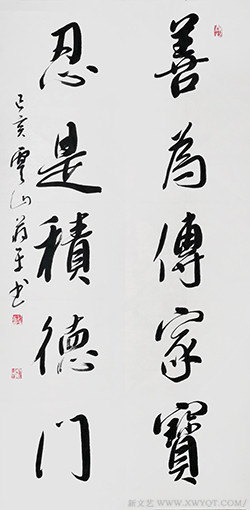 善為傳家寶
忍是積德門
己亥雲山蔣平书
新文艺 WWW.XWYQT.COM/